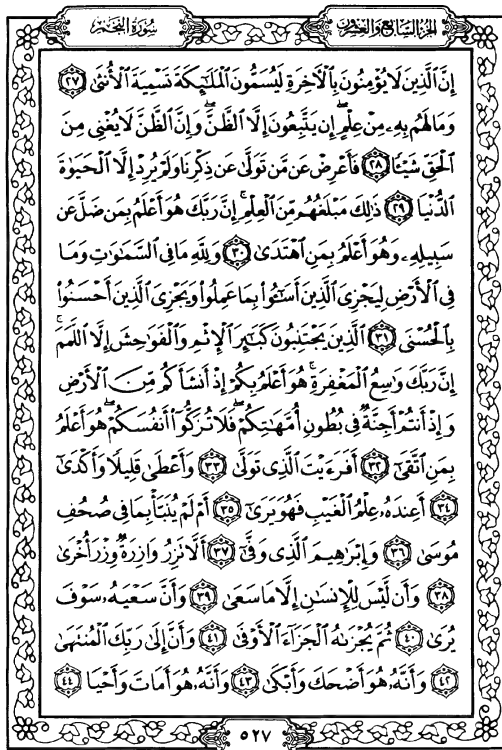 الجزء السابع والعشرون
سورة النجم
إِنَّ الَّذِينَ لَا يُؤْمِنُونَ بِالْآخِرَةِ لَيُسَمُّونَ الْمَلَائِكَةَ تَسْمِيَةَ الْأُنثَىٰ ٢٧
وَمَا لَهُم بِهِۦ مِنْ عِلْمٍ ۖ إِن يَتَّبِعُونَ إِلَّا الظَّنَّ ۖ وَإِنَّ الظَّنَّ لَا يُغْنِي مِنَ
الْحَقِّ شَيْئًا ٢٨ فَأَعْرِضْ عَن مَّن تَوَلَّىٰ عَن ذِكْرِنَا وَلَمْ يُرِدْ إِلَّا الْحَيَوٰةَ
الدُّنْيَا ٢٩ ذَٰلِكَ مَبْلَغُهُم مِّنَ الْعِلْمِ ۚ إِنَّ رَبَّكَ هُوَ أَعْلَمُ بِمَن ضَلَّ عَن
سَبِيلِهِۦ وَهُوَ أَعْلَمُ بِمَنِ اهْتَدَىٰ ٣٠ وَلِلَّهِ مَا فِي السَّمَٰوَٰتِ وَمَا
فِي الْأَرْضِ لِيَجْزِيَ الَّذِينَ أَسَٰٓـُٔوا بِمَا عَمِلُوا وَيَجْزِيَ الَّذِينَ أَحْسَنُوا
بِالْحُسْنَى ٣١ الَّذِينَ يَجْتَنِبُونَ كَبَٰٓئِرَ الْإِثْمِ وَالْفَوَٰحِشَ إِلَّا اللَّمَمَ ۚ
إِنَّ رَبَّكَ وَٰسِعُ الْمَغْفِرَةِ ۚ هُوَ أَعْلَمُ بِكُمْ إِذْ أَنشَأَكُم مِّنَ الْأَرْضِ
وَإِذْ أَنتُمْ أَجِنَّةٌ فِي بُطُونِ أُمَّهَٰتِكُمْ ۖ فَلَا تُزَكُّوا أَنفُسَكُمْ ۖ هُوَ أَعْلَمُ
بِمَنِ اتَّقَىٰ ٣٢ أَفَرَءَيْتَ الَّذِي تَوَلَّىٰ ٣٣ وَأَعْطَىٰ قَلِيلًا وَأَكْدَىٰ
٣٤ أَعِندَهُۥ عِلْمُ الْغَيْبِ فَهُوَ يَرَىٰ ٣٥ أَمْ لَمْ يُنَبَّأْ بِمَا فِي صُحُفِ
مُوسَىٰ ٣٦ وَإِبْرَٰهِيمَ الَّذِي وَفَّىٰ ٣٧ أَلَّا تَزِرُ وَازِرَةٌ وِزْرَ أُخْرَىٰ
٣٨ وَأَن لَّيْسَ لِلْإِنسَٰنِ إِلَّا مَا سَعَىٰ ٣٩ وَأَنَّ سَعْيَهُۥ سَوْفَ
يُرَىٰ ٤٠ ثُمَّ يُجْزَىٰهُ الْجَزَاءَ الْأَوْفَىٰ ٤١ وَأَنَّ إِلَىٰ رَبِّكَ الْمُنتَهَىٰ
٤٢ وَأَنَّهُۥ هُوَ أَضْحَكَ وَأَبْكَىٰ ٤٣ وَأَنَّهُۥ هُوَ أَمَاتَ وَأَحْيَا ٤٤
٥٢٧